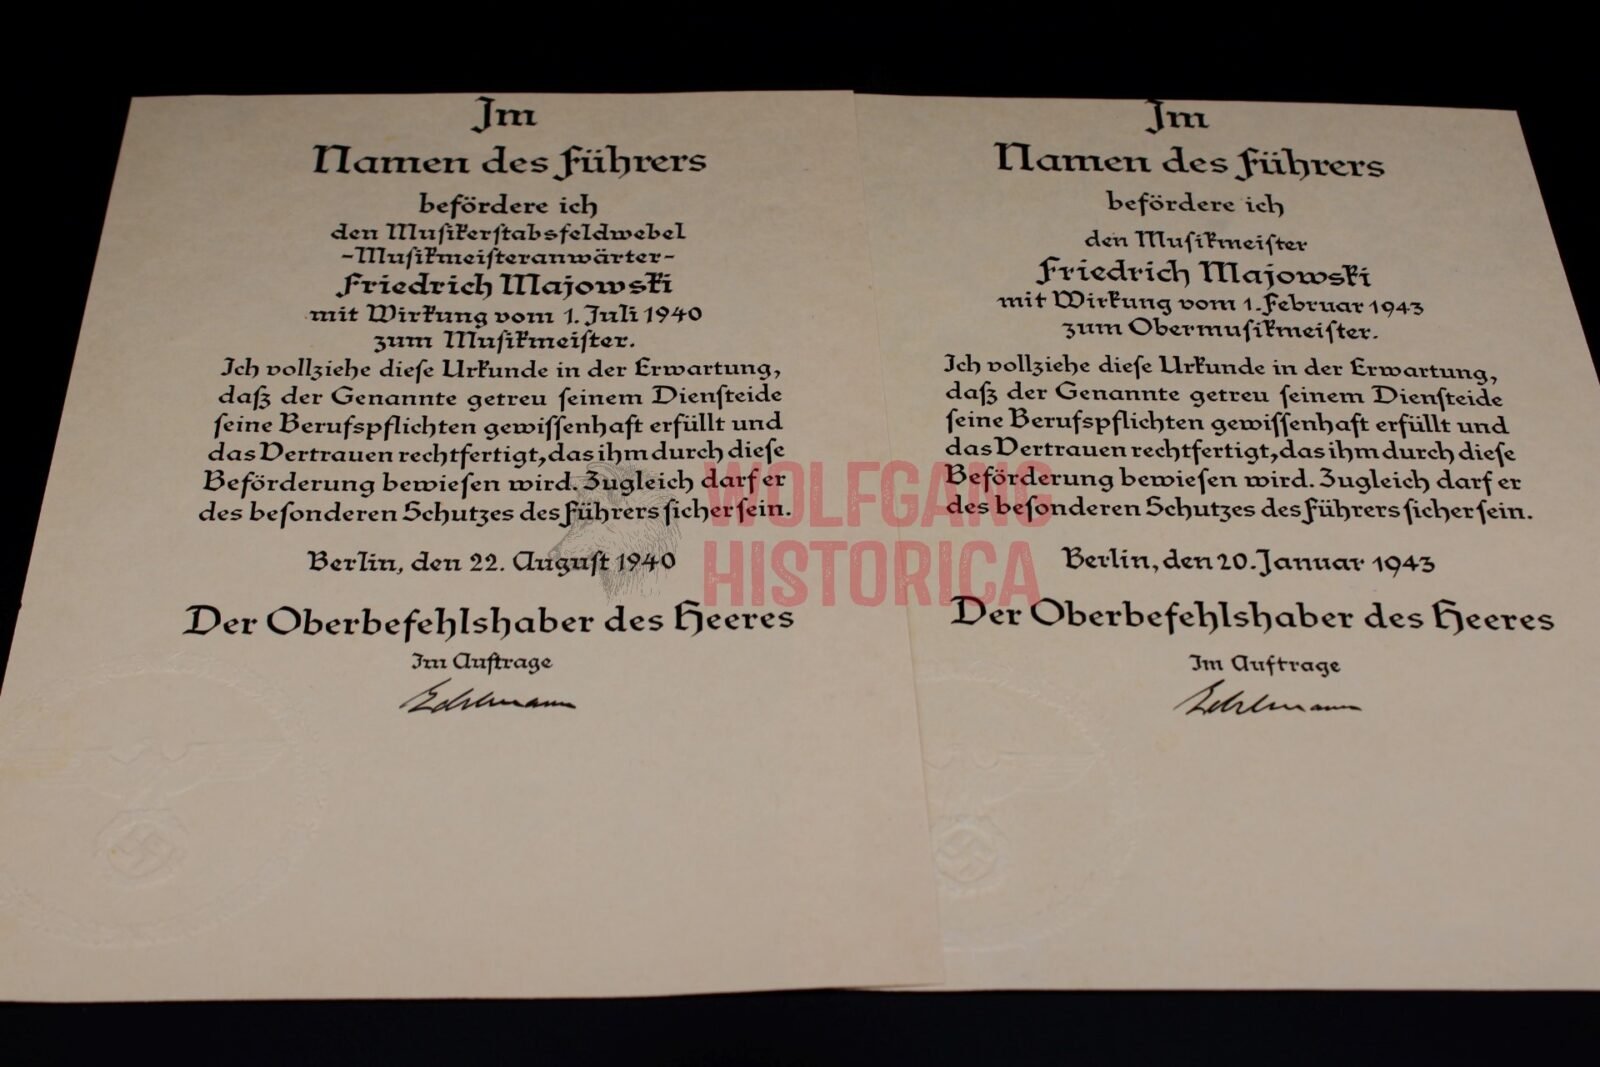 Im
Namen des Führers
befördere ich
den Muſikerſtabsfeldwebel
-Muſikmeiſteranwärter-
Friedrich Majowski
mit Wirkung vom 1. Juli 1940
zum Muſikmeiſter.
Ich vollziehe dieſe Urkunde in der Erwartung,
daß der Genannte getreu ſeinem Dienſteide
ſeine Berufspflichten gewiſſenhaft erfüllt und
das Vertrauen rechtfertigt, das ihm durch dieſe
Beförderung bewieſen wird. Zugleich darf er
des beſonderen Schutzes des Führers ſicher ſein.
Berlin, den 22. Auguſt 1940
Der Oberbefehlshaber des Heeres
Im Auftrage
Im
Namen des Führers
befördere ich
den Muſikmeiſter
Friedrich Majowski
mit Wirkung vom 1. Februar 1943
zum Obermuſikmeiſter.
Ich vollziehe dieſe Urkunde in der Erwartung,
daß der Genannte getreu ſeinem Dienſteide
ſeine Berufspflichten gewiſſenhaft erfüllt und
das Vertrauen rechtfertigt, das ihm durch dieſe
Beförderung bewieſen wird. Zugleich darf er
des beſonderen Schutzes des Führers ſicher ſein.
Berlin, den 20. Januar 1943
Der Oberbefehlshaber des Heeres
Im Auftrage
WOLFGANG
HISTORICA